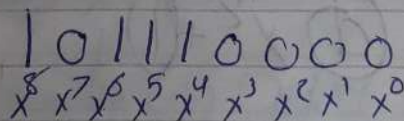 1 0 1 1 1 0 0 0 0
x⁸ x⁷ x⁶ x⁵ x⁴ x³ x² x¹ x⁰